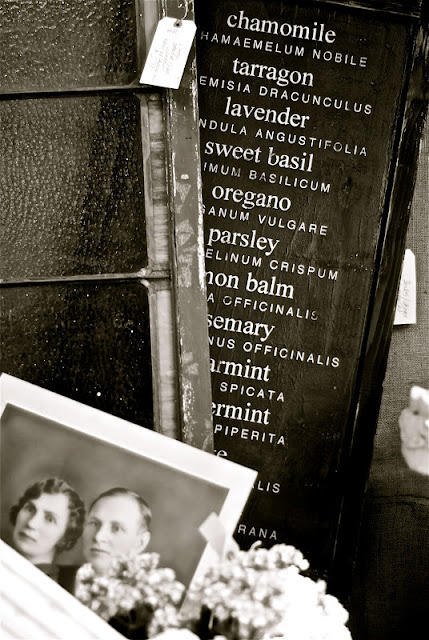 chamomile
HAMAEMELUM NOBILE
tarragon
EMISIA DRACUNCULUS
lavender
NDULA ANGUSTIFOLIA
sweet basil
IMUM BASILICUM
oregano
GANUM VULGARE
parsley
ELINUM CRISPUM
mon balm
A OFFICINALIS
semary
NUS OFFICINALIS
armint
SPICATA
ermint
PIPERITA
ALIS
RANA